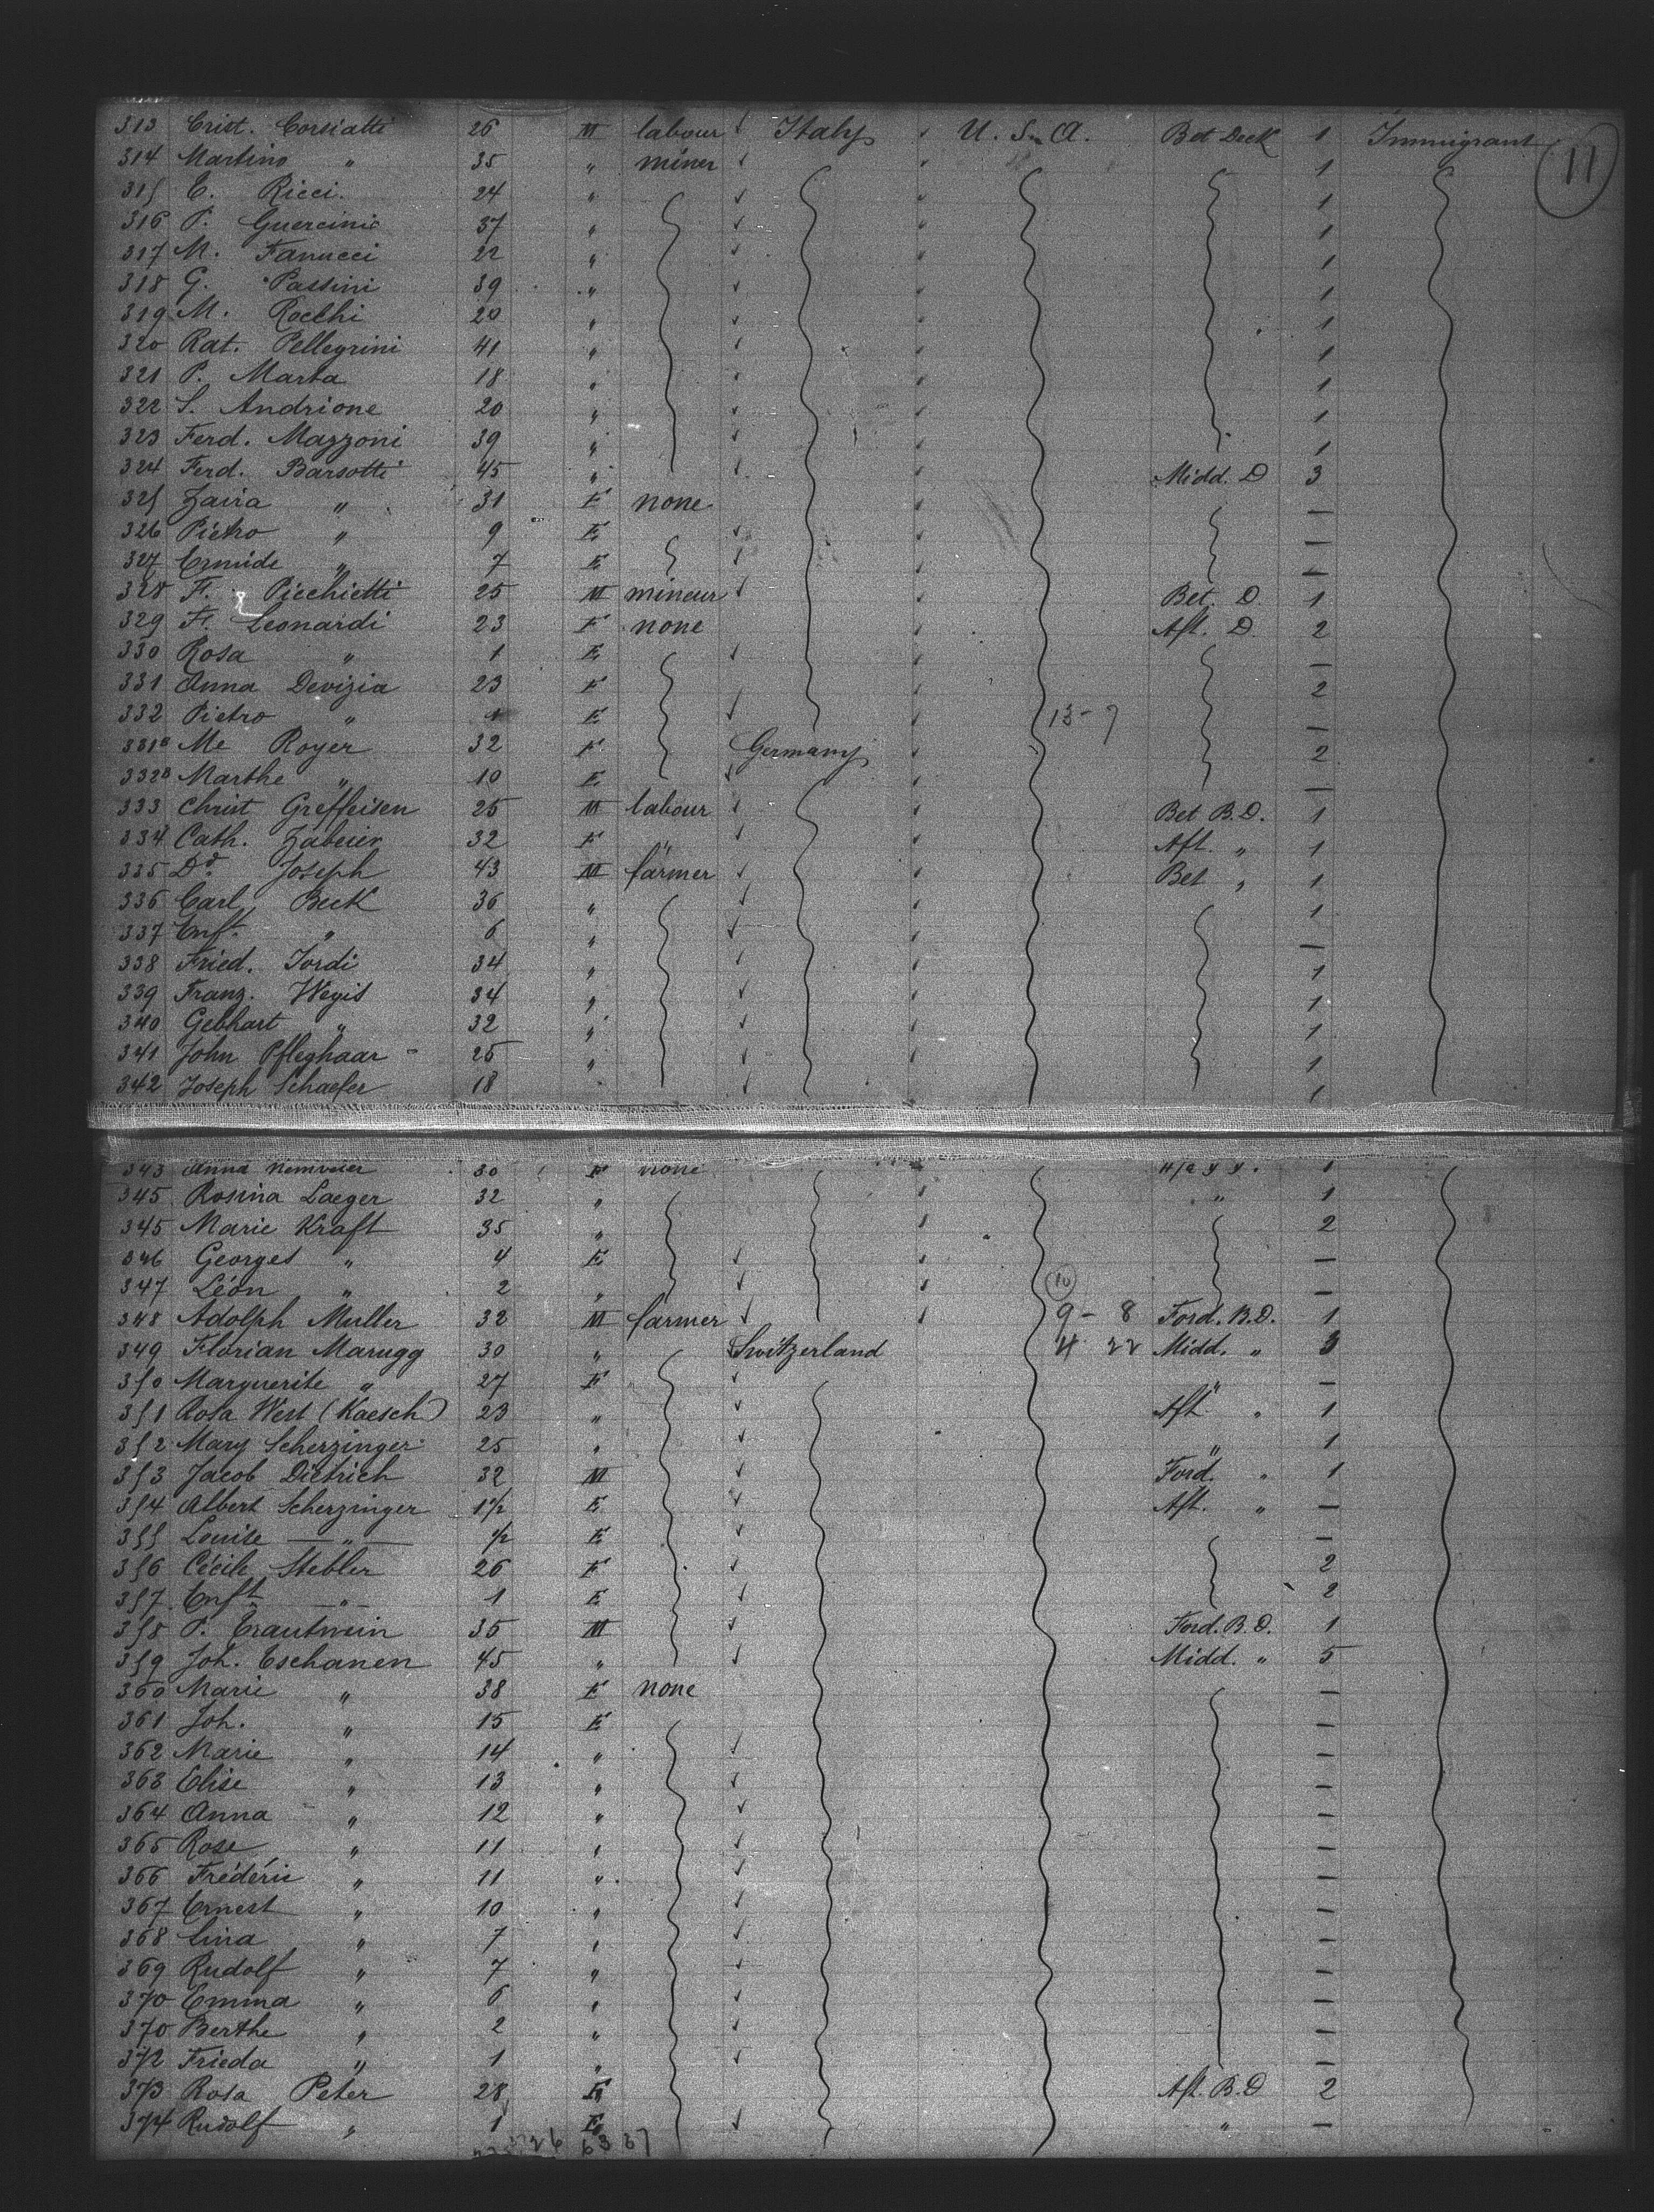 11
313 Crist. Corsialti 26 M labour Italy U. S. A. Bet Deck 1 Immigrant
314 Martino " 35 " miner 1
315 E. Ricci. 24 " 1
316 P. Guercini 37 " 1
317 M. Fanucci 22 " 1
318 G. Passini 39 " 1
319 M. Rocchi 20 " 1
320 Rat. Pellegrini 41 " 1
321 P. Marta 18 " 1
322 S. Andrione 20 " 1
323 Ferd. Mazzoni 39 " 1
324 Ferd. Barsotti 45 " Midd. D 3
325 Zaira " 31 F none —
326 Pietro " 9 E —
327 Ermide " 7 E —
328 F. Picchietti 25 M mineur Bet. D. 1
329 F. Leonardi 23 F none Aft. D. 2
330 Rosa " 1 E —
331 Anna Devizia 23 F 2
332 Pietro " 1 E 13-7 —
331B Me Royer 32 F Germany 2
332B Marthe " 10 E —
333 Christ Greffeisen 25 M labour Bet B.D. 1
334 Cath. Zabeier 32 F " Aft. " 1
335 Do Joseph 43 M farmer Bet " 1
336 Carl Beck 36 " 1
337 Enft. " 6 " —
338 Fried. Jordi 34 " 1
339 Franz. Wegis 34 " 1
340 Gebhart " 32 " 1
341 John Pfleghaar 25 " 1
342 Joseph Schaefer 18 1
343 Anna 30 F none 1
345 Rosina Laeger 32 " " 1
345 Marie Kraft 35 " 2
346 Georges " 4 E —
347 Léon " 2 " 10 —
348 Adolph Muller 32 M farmer 9-8 Ford. B.D. 1
349 Florian Marugg 30 " Switzerland 4 22 Midd. " 3
350 Marguerite " 27 F " —
351 Rosa West (Kaesch) 23 " Aft " 1
352 Mary Scherzinger 25 " " 1
353 Jacob Dietrich 32 M Ford. " 1
354 Albert Scherzinger 1½ E Aft. " —
355 Louise — " — ½ E —
356 Cécile Stebler 26 F 2
357 Enft — " — 1 E 2
358 P. Trautwein 35 M Ford. B. D. 1
359 Joh. Eschanen 45 " Midd. " 5
360 Marie " 38 F none —
361 Joh. " 15 E —
362 Marie " 14 " —
363 Elise " 13 " —
364 Anna " 12 " —
365 Rose " 11 " —
366 Frédéric " 11 " —
367 Ernest " 10 " —
368 Lina " 7 " —
369 Rudolf " 7 " —
370 Emma " 6 " —
370 Berthe " 2 " —
372 Frieda " 1 " —
373 Rosa Peter 28 F Aft. B. D 2
374 Rudolf " 1 E " —
26 63 37